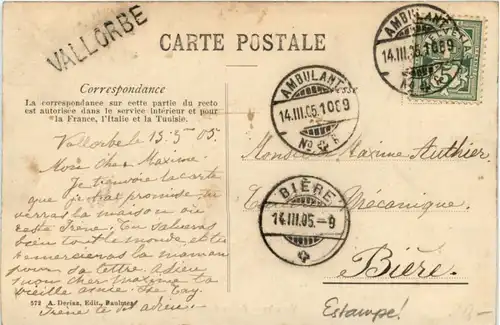 VALLORBE
CARTE POSTALE
AMBULANT
14.III.05.1069
No
HELVETIA
AMBULANT
14.III.05.1069
No
Correspondance
La correspondance sur cette partie du recto
est autorisée dans le service intérieur et pour
la France, l'Italie et la Tunisie.
Vallorbe 13.3 05.
Mon cher Maxime.
Je t'envoie la carte
que je t'ai promise tu
verras la maison où
reste Irène. Tu salueras
bien tout le monde et tu
remercieras la maman
pour sa lettre. Adieu
mon cher Maxime ta
vieille amie.
Irène te dit adieu.
Monsieur Maxime Authier
Mécanique.
BIÈRE
14.III.05.-9
Bière.
572 A. Deriaz, Edit., Baulmes
Estampe!